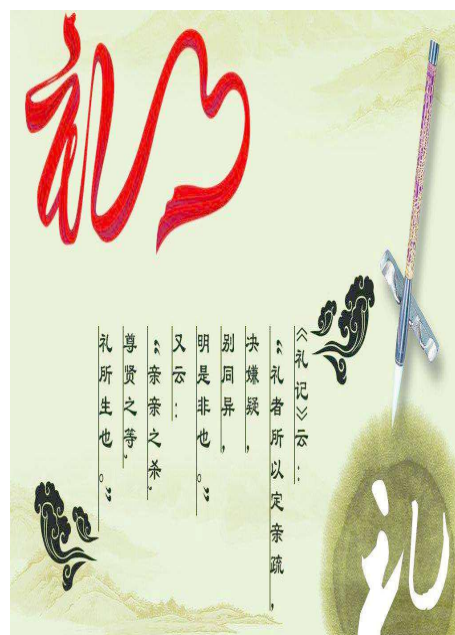 礼
《礼记》云：
“礼者所以定亲疏，
决嫌疑，
别同异，
明是非也。”
又云：
“亲亲之杀，
尊贤之等，
礼所生也。”
礼